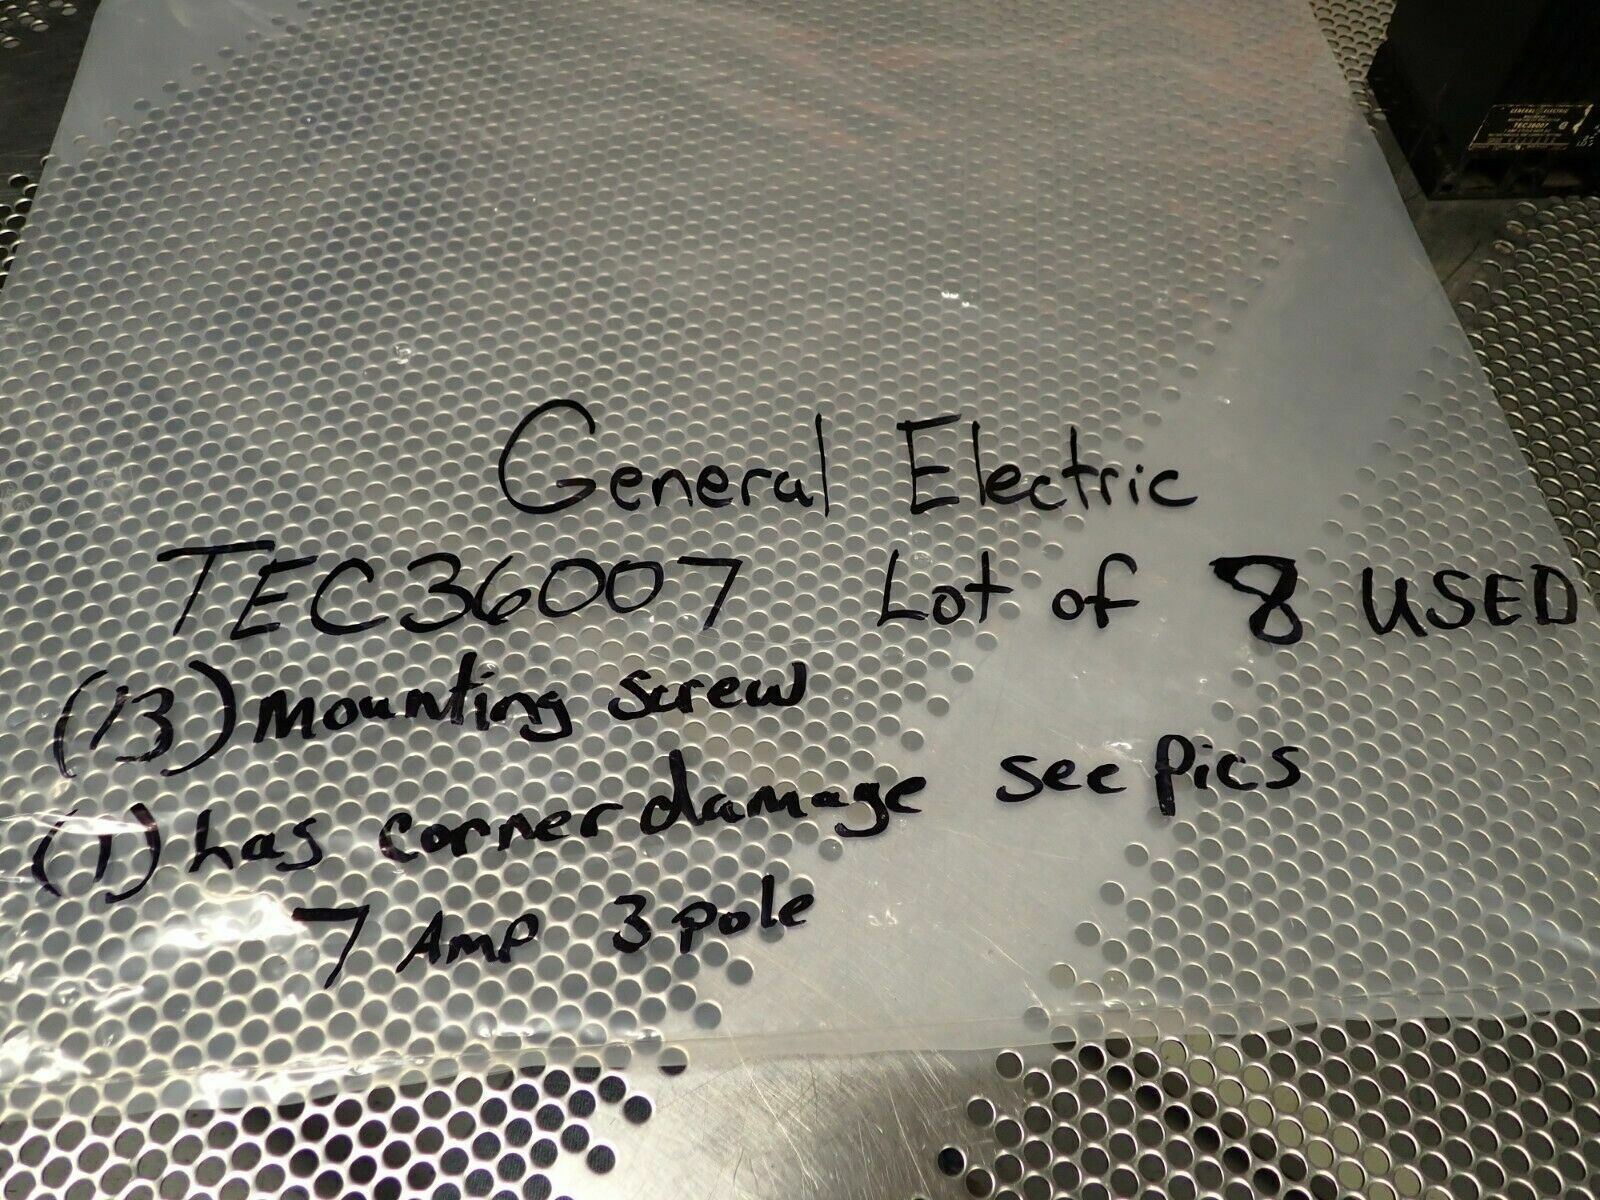 GENERAL ELECTRIC
TEC36007
General Electric
TEC36007 Lot of 8 USED
(13) mounting screw
(1) has corner damage see pics
7 Amp 3 pole